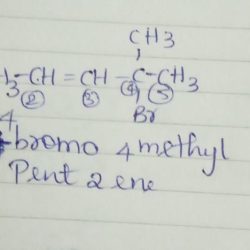 CH3
H3-CH = CH - C - CH3
② ③ ④ ⑤
Br
4
-bromo 4 methyl
Pent 2 ene